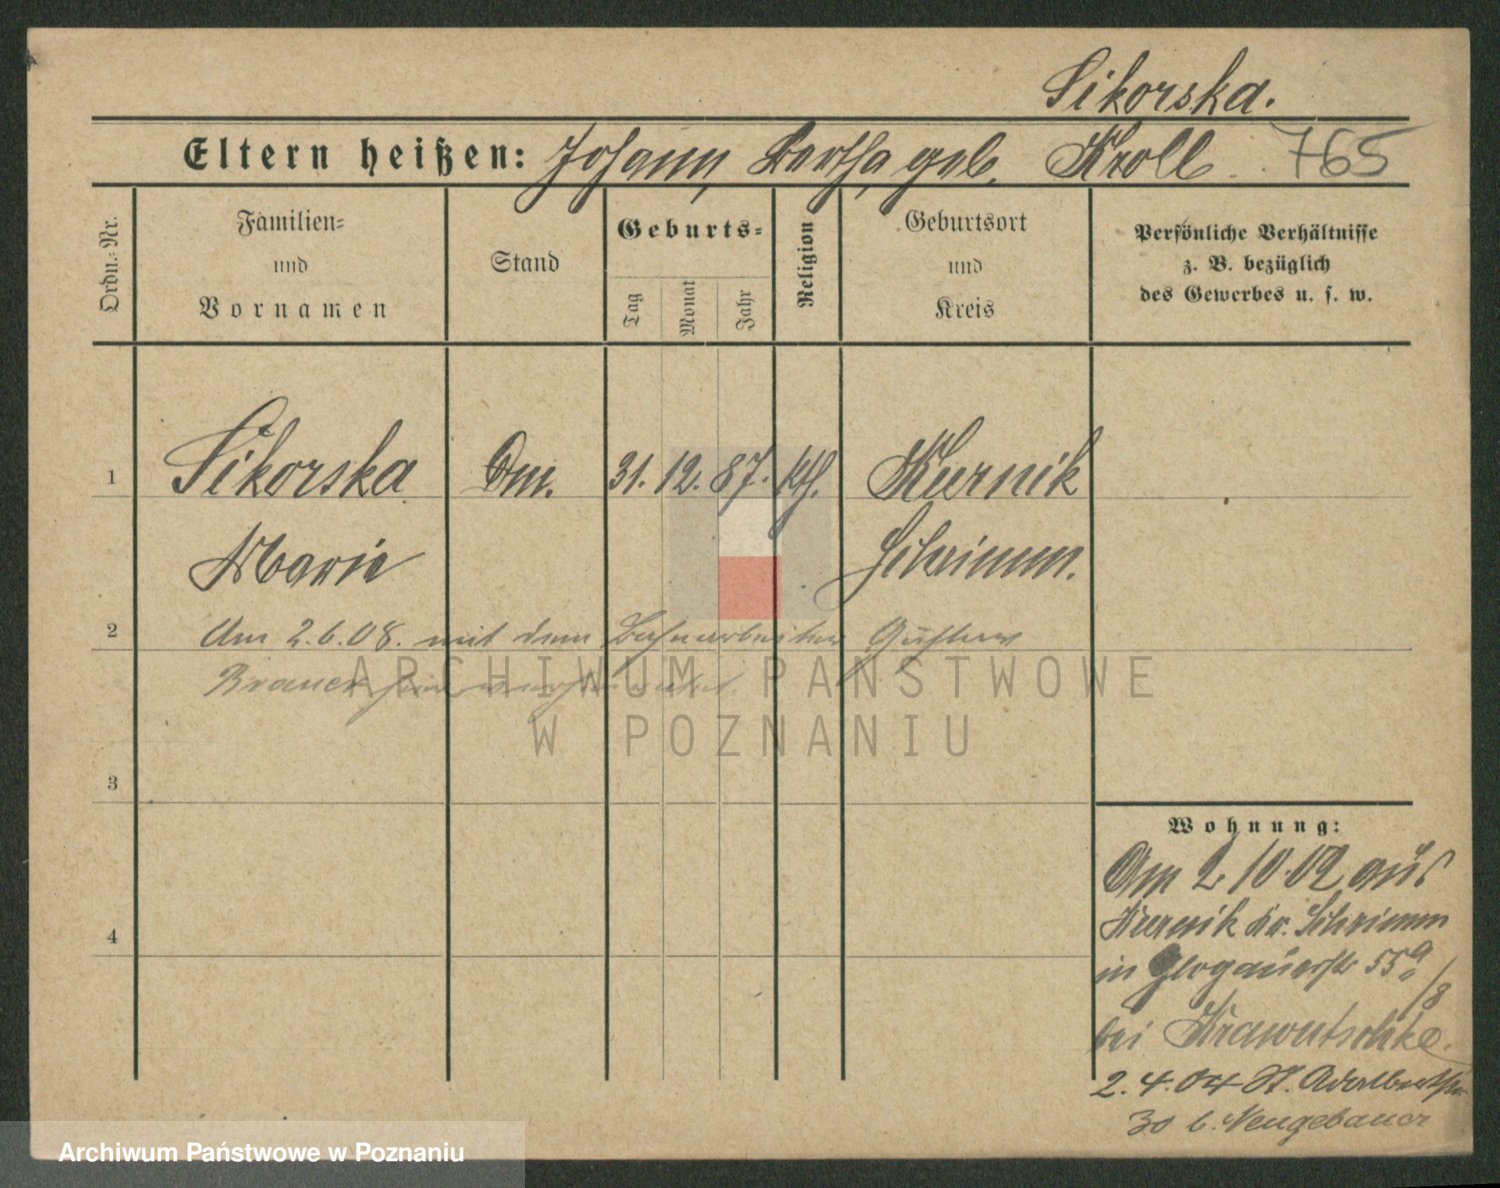 Sikorska.
Eltern heißen: Johann, Bertha geb. Kroll 765
Ordn.-Nr.
Familien-
und
Vornamen
Stand
Geburts-
Tag
Monat
Jahr
Religion
Geburtsort
und
Kreis
Persönliche Verhältnisse
z. B. bezüglich
des Gewerbes u. s. w.
1 Sikorska Dm. 31. 12. 87. kth. Kurnik
Marie Schrimm.
2 Am 2.6.08. mit dem Bahnarbeiter Gustav
3
4
Wohnung:
Am 2/10.02 aus
Kurnik Kr. Schrimm
in Glogauerstr 55a/8
bei Krawutschke.
2.4.04 St. Adalbertstr
30 b. Neugebauer
ARCHIWUM PAŃSTWOWE
W POZNANIU
Archiwum Państwowe w Poznaniu